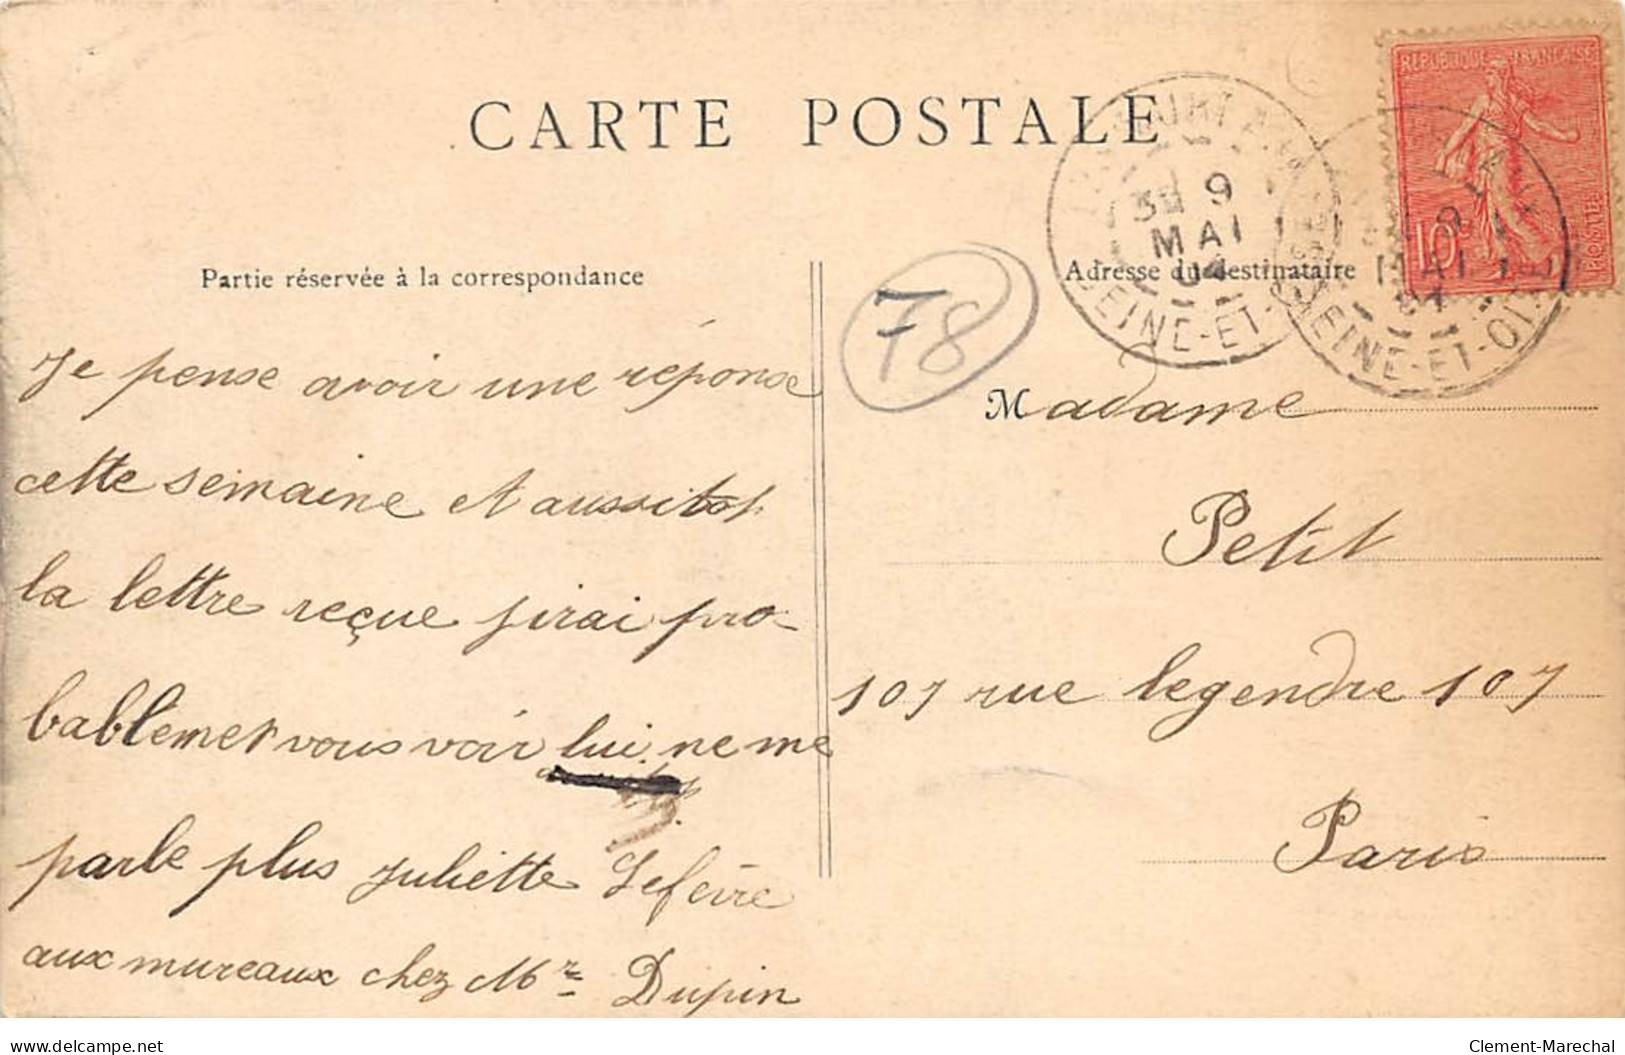 CARTE POSTALE
RÉPUBLIQUE FRANÇAISE
10
POSTES
3E 9
MAI
04
SEINE-ET-
MAI
04
SEINE-ET-OISE
Partie réservée à la correspondance
Adresse du destinataire
78
Je pense avoir une réponse
cette semaine et aussitot
la lettre reçue jirai pro-
bablemet vous voir lui ne me
parle plus Juliette Lefèvre
aux mureaux chez Mr Dupin
Madame
Petit
107 rue legendre 107
Paris
delcampe.net
Clement-Marechal